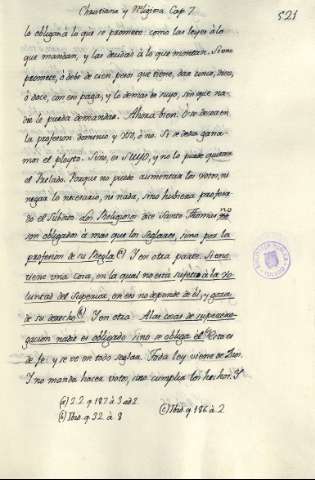 Christiana y Religiosa Cap. 7.
521
lo obligan a lo que se promete: como las leyes a lo
que mandan, y las deudas a lo que montan. Si uno
promete, ò debe de cien pesos que tiene, dar cinco, diez,
ò doce, con eso paga, y lo demas es suyo, sin que na-
die lo pueda demandar. Ahora bien. O se da en
la profesion dominio y uso, ò no. Si se da gana-
mos el pleyto. Sino, es suyo, y no lo puede quitar
el Prelado. Porque no puede aumentar los votos, ni
negar lo necesario, ni nada, sino hubiera profesa-
do el Subdito. Los Religiosos dice Santo Thomas no
son obligados à mas que los Seglares, sino por la
profesion de su Regla (a) Y en otra parte. Si uno
tiene una cosa, en la qual no està sujeto à la Vo-
luntad del Superior, en eso no depende de èl, y goza
de su derecho (b) Y en otra. A las cosas de supereroga-
gacion nadie es obligado sino se obliga èl (c) Esto es
de fe. y se ve en todo seglar. Toda Ley viene de Dios.
Y no manda hacer votos, sino cumplir los hechos. Y
(a) 2.2. q 187 à 3 ad 2
(b) Ibid q 32 à 8
(c) Ibid q 186 à 2